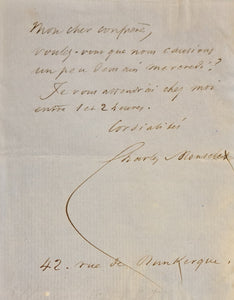 Mon cher confrère,
voulez-vous que nous causions
un peu demain mercredi ?
Je vous attendrai chez moi
entre 1 et 2 heures.
Cordialités
Charles Monselet
42. rue de Dunkerque.